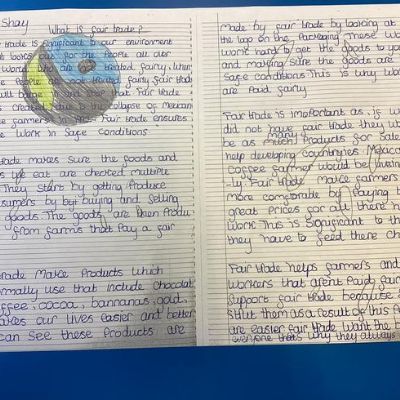 Shay What is fair trade?
trade is significant to our environment
it looks for the people all our
world are treated fairly. When
treated fairly. Fair trade
will bring that Fair trade
was created due to the collapse of Mexican
farmers in the. Fair trade ensures
work in safe conditions
trade makes sure the goods and
we eat are checked multiple
They start by getting Produce
sumers by buying and selling
goods. The goods are then Produ
from farms that pay a fair
trade make products which
mally use that include chocolat
ffee, cocoa, bannanas, gold,
akes our lives easier and better
can see these products are
made by fair trade by looking at
the logo on the packaging. These wo
work hard to get the goods to you
and making sure the goods are
safe conditions. This is why wor
are paid fairly
Fair trade is important as, is w
did not have fair trade they w
be as many products for sale
help developing countries. Mexica
coffee farmer would be livein
-ly Fair trade make farmers
more comfortable by paying t
great prices for all there h
work. This is significant to th
they have to feed there ch
Fair trade helps farmers and
workers that arent paid fair
support fair trade because
them as a result of this f
are easier. Fair trade want the b
everyone thats why they always